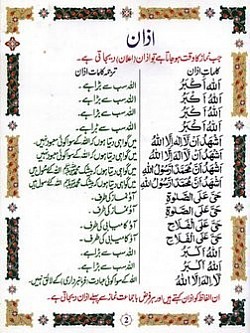 اذان
جب نماز کا وقت ہو جاتا ہے تو اذان (اعلان) دیجاتی ہے۔
کلماتِ اذان ترجمہ کلمات اذان
اَللّٰهُ اَكْبَرُ اللہ سب سے بڑا ہے۔
اَللّٰهُ اَكْبَرُ اللہ سب سے بڑا ہے۔
اَللّٰهُ اَكْبَرُ اللہ سب سے بڑا ہے۔
اَللّٰهُ اَكْبَرُ اللہ سب سے بڑا ہے۔
اَشْهَدُ اَنْ لَّا اِلٰهَ اِلَّا اللّٰهُ میں گواہی دیتا ہوں کہ اللہ کے سوا کوئی معبود نہیں۔
اَشْهَدُ اَنْ لَّا اِلٰهَ اِلَّا اللّٰهُ میں گواہی دیتا ہوں کہ اللہ کے سوا کوئی معبود نہیں۔
اَشْهَدُ اَنَّ مُحَمَّدًا رَّسُوْلُ اللّٰهِ میں گواہی دیتا ہوں کہ
اَشْهَدُ اَنَّ مُحَمَّدًا رَّسُوْلُ اللّٰهِ میں گواہی دیتا ہوں کہ
حَيَّ عَلَى الصَّلٰوةِ آؤ نماز کی طرف۔
حَيَّ عَلَى الصَّلٰوةِ آؤ نماز کی طرف۔
حَيَّ عَلَى الْفَلَاحِ آؤ کامیابی کی طرف۔
حَيَّ عَلَى الْفَلَاحِ آؤ کامیابی کی طرف۔
اَللّٰهُ اَكْبَرُ اللہ سب سے بڑا ہے۔
اَللّٰهُ اَكْبَرُ اللہ سب سے بڑا ہے۔
لَا اِلٰهَ اِلَّا اللّٰهُ اللہ کے سوا کوئی
ان الفاظ کو اذان کہتے ہیں اور ہر فرض باجماعت نماز سے پہلے اذان دیجاتی ہے۔
2